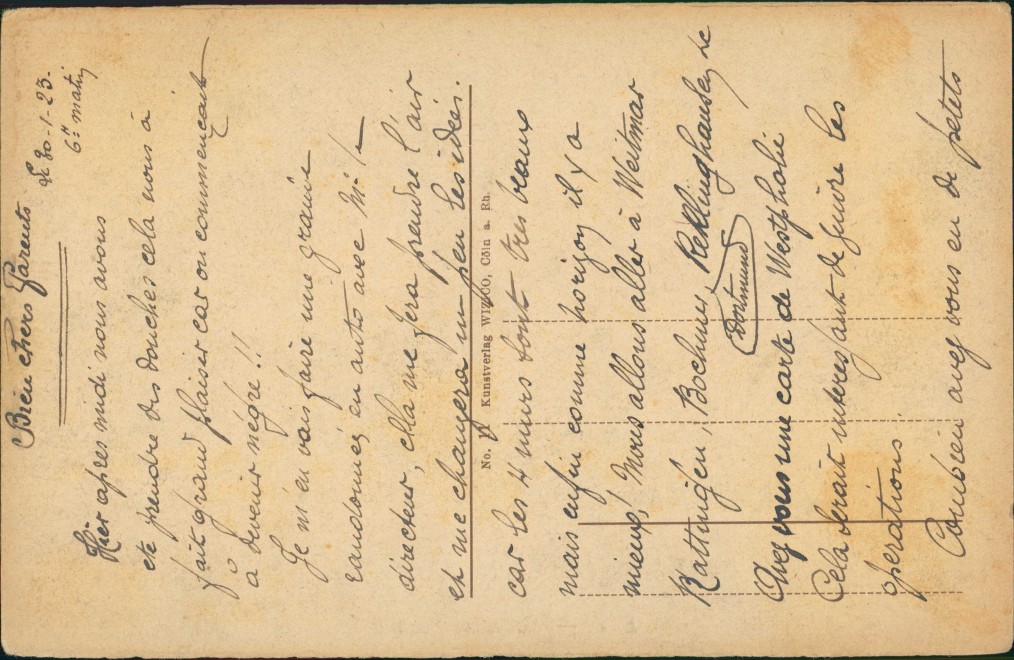 Bien chers Parents
Le 30-1-23-
6h matin
Hier apres midi nous avons
ete prendre des douches cela nous à
fait grand plaisir car on commençait
à devenir nègre!!
Je m'en vais faire une grande
randonnée en auto avec Mr le
directeur, cela me fera prendre l'air
et me changera un peu les idées.
No. Kunstverlag WIZICO, Cöln a. Rh.
car les 4 murs sont tres beaux
mais enfin comme horizon il y a
mieux! Nous allons aller à Weitmar
Kattingen, Bochum, Reklinghausen, Le
Dortmund
Avez vous une carte de Westpholie
Cela serait interessant de suivre les
operations
Combien avez vous eu de petits